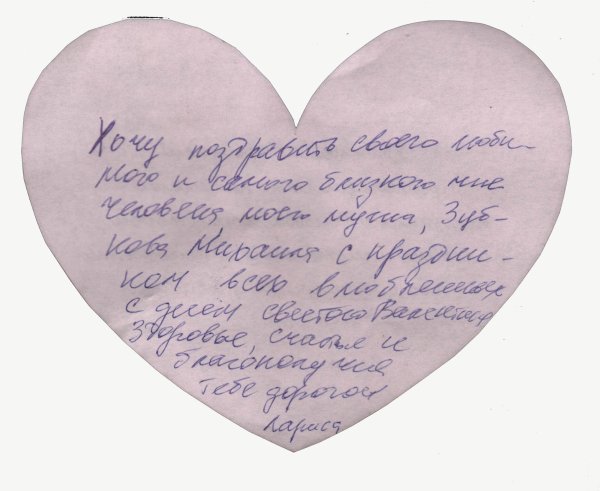 Хочу поздравить своего люби-
мого и самого близкого мне
человека, моего мужа, Зуб-
кова Михаила с праздни-
ком всех влюбленных
с днём святого Валентина
Здоровье, счастья и
благополучия
тебе дорогой
Лариса